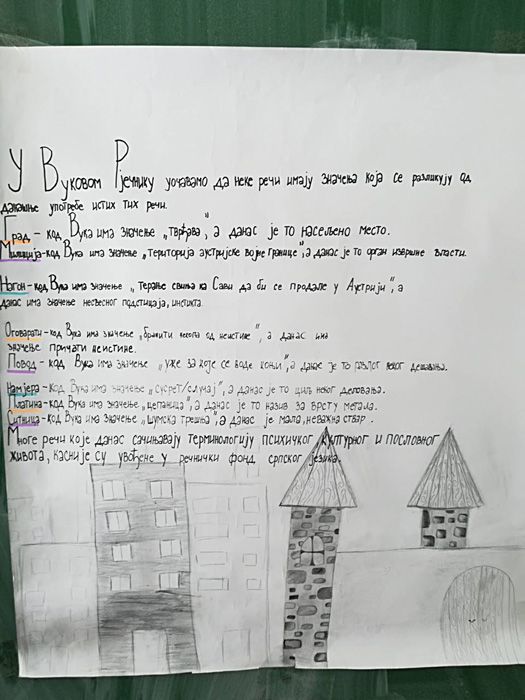 У Вуковом Рјечнику уочавамо да неке речи имају значења која се разликују од
данашње употребе истих тих речи.
Град - код Вука има значење „тврђава“, а данас је то насељено место.
Милиција - код Вука има значење „територија аустријске војне границе“, а данас је то орган извршне власти.
Нагон - код Вука има значење „терање свиња ка Сави да би се продале у Аустрији“, а
данас има значење несвесног подстицаја, инстикта.
Оговарати - код Вука има значење „бранити некога од неистине“, а данас има
значење причати неистине.
Повод - код Вука има значење „уже за које се воде коњи“, а данас је то разлог неког дешавања.
Намјера - код Вука има значење „сусрет/случај“, а данас је то циљ неког деловања.
Платина - код Вука има значење „цепаница“, а данас је то назив за врсту метала.
Ситница - код Вука има значење „шумска трешња“, а данас је мала, неважна ствар.
Многе речи које данас сачињавају терминологију психичког, културног и пословног
живота, касније су увођене у речнички фонд српског језика.